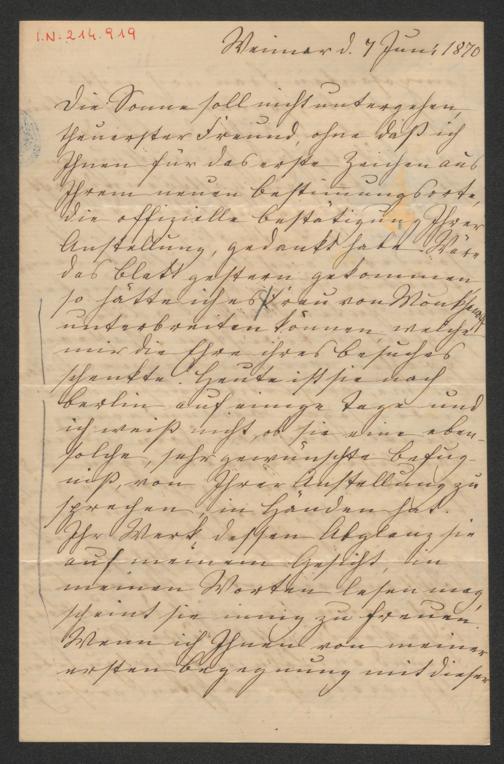 I.N. 214.919
Weimar d. 7 Juni 1870
Die Sonne soll nicht untergehen,
theuerster Freund, ohne daß ich
Ihnen für das erste Zeichen aus
Ihrem neuen Bestimmungsorte,
die offizielle Bestätigung Ihrer
Anstellung, gedankt habe. Wäre
das Blatt gestern gekommen,
so hätte ich es Frau von
unterbreiten können, welche
mir die Ehre ihres Besuches
schenkte. Heute ist sie nach
Berlin auf einige Tage und
ich weiß nicht, ob sie eine eben-
solche, sehr gewünschte Befug-
niß, von Ihrer Anstellung zu
sprechen, in Händen hat.
Ihr Werk, dessen Abglanz sie
auf meinem Gesicht, in
meinen Worten lesen mag,
scheint sie innig zu freuen.
Wenn ich Ihnen von meiner
ersten Begegnung mit dieser